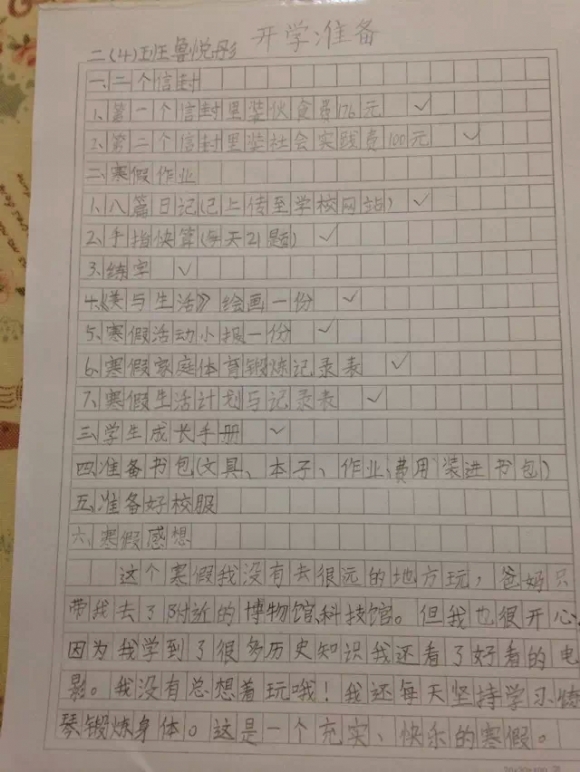 开学准备
二(4)班鲁悦彤
一、二个信封
1、第一个信封里装伙食费176元 ✓
2、第二个信封里装社会实践费100元 ✓
二、寒假作业
1、八篇日记(已上传至学校网站) ✓
2、手指快算(每天21题) ✓
3、练字 ✓
4、《美与生活》绘画一份 ✓
5、寒假活动小报一份 ✓
6、寒假家庭体育锻炼记录表 ✓
7、寒假生活计划与记录表 ✓
三、学生成长手册 ✓
四、准备书包(文具、本子、作业、费用装进书包)
五、准备好校服
六、寒假感想
这个寒假我没有去很远的地方玩，爸妈只
带我去了附近的博物馆、科技馆。但我也很开心,
因为我学到了很多历史知识我还看了好看的电
影。我没有总想着玩哦！我还每天坚持学习
琴锻炼身体。这是一个充实、快乐的寒假。